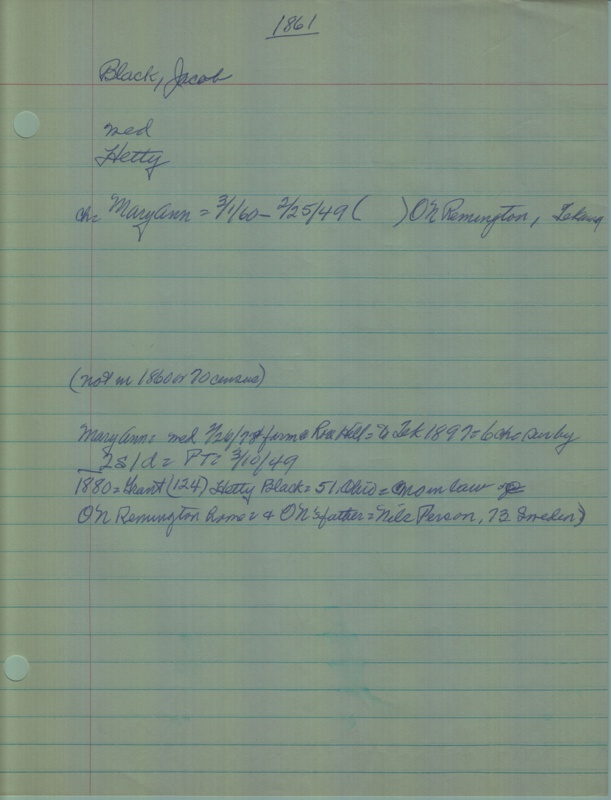 1861
Black, Jacob
med
Hetty
ch= Mary Ann = 3/1/60 – 2/25/49 ( ) ON Remington,
(not in 1860 or 70 census)
Mary Ann = med farm @ Rose Hill = to Tek 1897 = 6 ch = sur by
2s/1d = PTC 3/10/49
1880 = Grant (124) Hetty Black = 51 Ohio = mom law
ON Remington home = & ON's father = Nils Person, 73 Sweden)